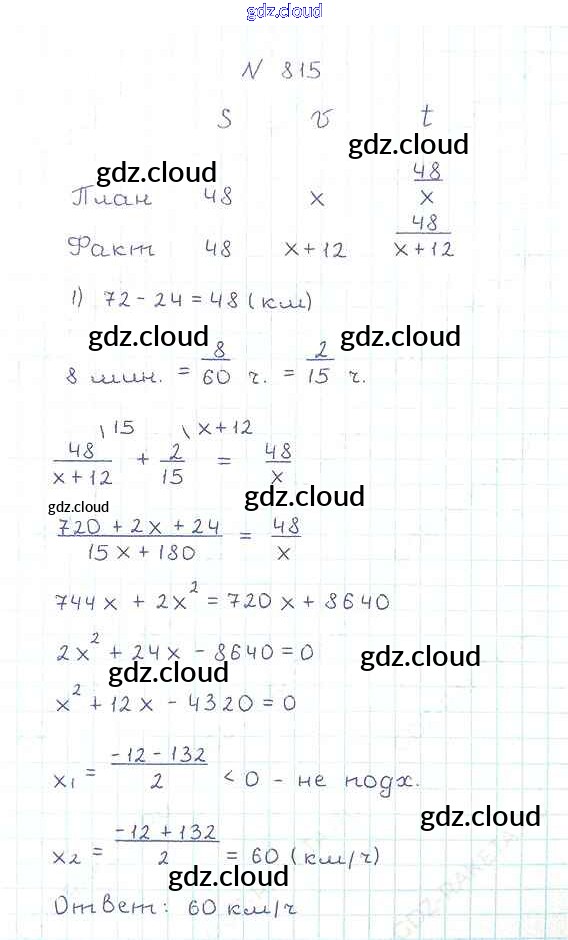 gdz.cloud
N 815
S v t
gdz.cloud gdz.cloud
План 48 x 48/x
Факт 48 x+12 48/(x+12)
1) 72 - 24 = 48 (км)
gdz.cloud gdz.cloud
8 мин. = 8/60 ч. = 2/15 ч.
\15 \x+12
48/(x+12) + 2/15 = 48/x
gdz.cloud gdz.cloud
(720 + 2x + 24)/(15x + 180) = 48/x
744x + 2x² = 720x + 8640
2x² + 24x - 8640 = 0
gdz.cloud gdz.cloud
x² + 12x - 4320 = 0
x₁ = (-12 - 132)/2 < 0 - не подх.
gdz.cloud
x₂ = (-12 + 132)/2 = 60 (км/ч)
gdz.cloud
Ответ: 60 км/ч
GDZ-RAKETA